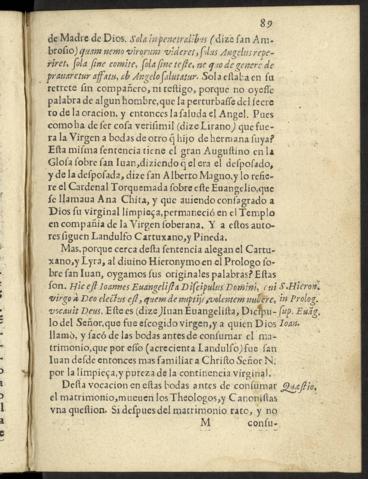 89
de Madre de Dios. Sola in penetralibus (dize san Am-
brosio) quam nemo virorum videret, solus Angelus repe-
riret, sola sine comite, sola sine teste, ne quo degenere de
prauaretur affatu, ab Angelo salutatur. Sola estaba en su
retrete sin compañero, ni testigo, porque no oyesse
palabra de algun hombre, que la perturbasse del secre
to de la oracion, y entonces la saluda el Angel. Pues
como ha de ser cosa verisimil (dize Lirano) que fue-
ra la Virgen a bodas de otro q̃ hijo de hermana suya?
Esta misma sentencia tiene el gran Augustino en la
Glosa sobre san Iuan, diziendo q̃ el era el desposado,
y de la desposada, dize san Alberto Magno, y lo refie-
re el Cardenal Torquemada sobre este Euangelio, que
se llamaua Ana Chita, y que auiendo consagrado a
Dios su virginal limpieça, permaneciò en el Templo
en compañia de la Virgen soberana. Y a estos auto-
res siguen Landulfo Cartuxano, y Pineda.
Mas, porque cerca desta sentencia alegan el Cartu-
xano, y Lyra, al diuino Hieronymo en el Prologo so-
bre san Iuan, oygamos sus originales palabras? Estas
son. Hic est Ioannes Euangelista Discipulus Domini, qui
virgo à Deo electus est, quem de nuptijs, volentem nubere,
vocauit Deus. Este es (dize) Iuan Euangelista, Dicipu-
lo del Señor, que fue escogido virgen, y a quien Dios
llamò, y sacò de las bodas antes de consumar el ma-
trimonio, que por esso (acrecienta Landulfo) fue san
Iuan desde entonces mas familiar a Christo Señor N.
por la limpieça, y pureza de la continencia virginal.
S. Hieron.
in Prolog.
sup. Euãg.
Ioan.
Desta vocacion en estas bodas antes de consumar
el matrimonio, mueuen los Theologos, y Canonistas
vna question. Si despues del matrimonio rato, y no
Quæstio.
M
consu-